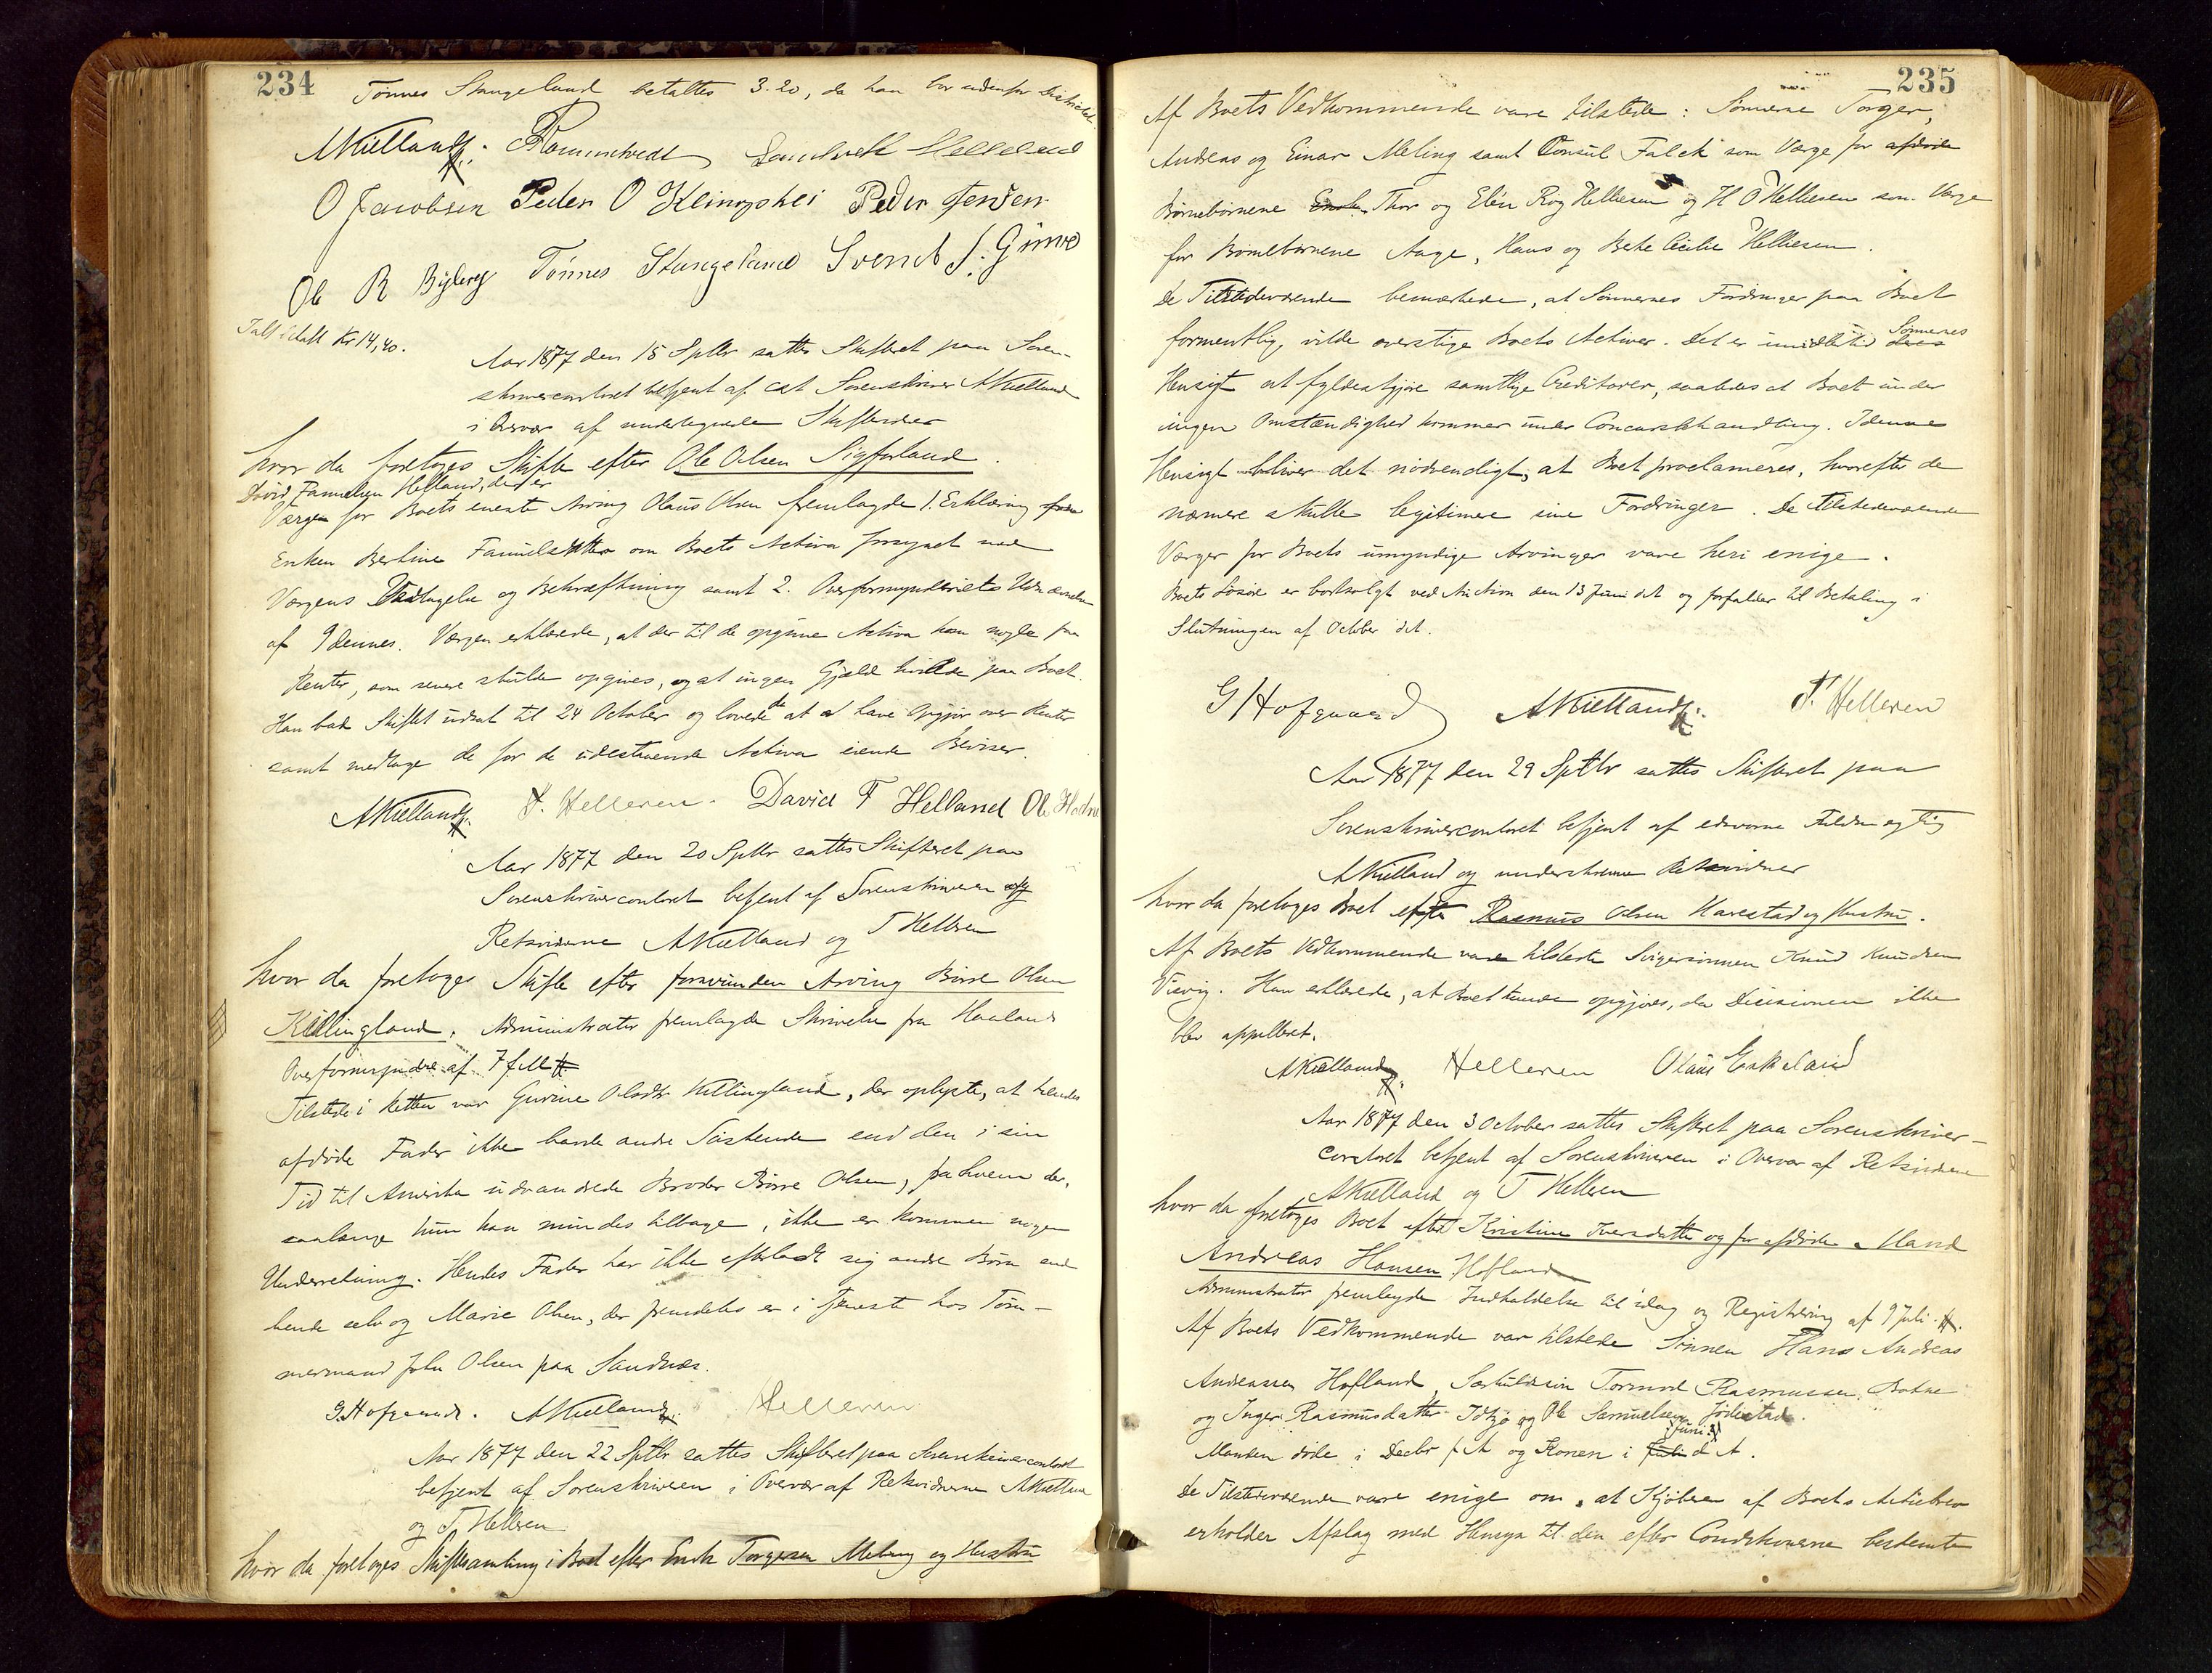 234
Tønnes Stangeland betaltes 3.20, da han bor udenfor Districtet.
AKielland. Sandvedt Helleland
O Jacobsen Peder O Kleingshei Peder Jensen
Ole R Byberg Tönnes Stangeland Svend S. Gimre
Talt betalt Kr 14,40.
Aar 1877 den 15 Sptbr sattes Skifteret paa Soren-
skrivercontoret betjent af cst Sorenskriver AKielland
i Overvær af undertegnede Skiftevidner
hvor da foretoges Skifte efter Ole Olsen Sigforland.
David Famuelsen Helland, der er
Værge for Boets eneste Arving Olaus Olsen fremlagde 1. Erklæring fra
Enken Bertine Famuelsdatter om Boets Activa forsynet med
Værgens Vedtagelse og Bekræftning samt 2. Overformynderiets
af 9 dennes. Værgen erklærede, at der til de opgivne Activa kom nogle faa
Renter, som senere skulde opgives, og at ingen Gjæld hvilede paa Boet.
Han bad Skiftet udsat til 24 October og lovede da at have Opgjør over Renter
samt medtage de for de udestaaende Activa eiende Beviser.
AKielland. T. Helleren. David F Helland Ole
Aar 1877 den 20 Sptbr sattes Skifteret paa
Sorenskrivercontoret betjent af Sorenskriveren og
Retsvidnerne AKielland og T Helleren
hvor da foretoges Skifte efter forsvunden Arving Börre Olsen
Killingland. Administrator fremlagde Skrivelse fra Haalands
Overformyndere af 7 f M #
Tilstede i Retten var Gurine Olsdtr Killingland, der oplyste, at hendes
afdöde Fader ikke havde andre Söskende end den i sin
Tid til Amerika udvandrede Broder Börre Olsen, fra hvem der,
saalænge hun kan mindes tilbage, ikke er kommen nogen
Underretning. Hendes Fader har ikke efterladt sig andre Börn end
hende selv og Marie Olsen, der fremdeles er i Tjeneste hos Töm-
mermand John Olsen paa Sandnæs.
G. Hofgaard. AKielland. Helleren
Aar 1877 den 22 Sptbr sattes Skifteret paa Sorenskrivercontoret
betjent af Sorenskriveren i Overvær af Retsvidnerne AKielland
og T. Helleren
hvor da foretoges Skiftesamling i Boet efter Enok Torgersen Meling og Hustru
235
Af Boets Vedkommende vare tilstede: Sönnerne Torger,
Andreas og Einar Meling samt Consul Falck som Værge for afdöde
Börnebörnene Enok, Thor og Elen Roy Helliesen og H O Helliesen som Værge
for Börnebörnene Aage, Hans og Bete Cecilie Helliesen.
De Tilstedeværende bemærkede, at Sönnernes Fordringer paa Boet
formentlig vilde overstige Boets Activer. Det er imidlertid deres Sönnernes
Hensigt at fyldestgjöre samtlige Creditorer, saaledes at Boet under
ingen Omstændighed kommer under Concursbehandling. I denne
Hensigt bliver det nödvendigt, at Boet proclameres, hvorefter de
nærmere skulle legitimere sine Fordringer. De tilstedeværende
Værger for Boets umyndige Arvinger vare heri enige.
Boets Lösöre er bortsolgt ved Auction den 13 Juni d A og forfalder til Betaling i
Slutningen af October d A.
G Hofgaard AKielland. T. Helleren
Aar 1877 den 29 Sptbr sattes Skifteret paa
Sorenskrivercontoret betjent af edsvorne Fuldmægtig
AKielland og underskrevne Retsvidner
hvor da foretoges Boet efter Rasmus Olsen Harestad og Hustru.
Af Boets Vedkommende vare tilstede Svigersönnen Knud Knudsen
Viervig. Han erklærede, at Boet kunde opgjöres, da Decisionen ikke
blev appelleret.
AKielland Helleren Olaus Eskeland
Aar 1877 den 3 October sattes Skifteret paa Sorenskriver-
contoret betjent af Sorenskriveren i Overvær af Retsvidnerne
AKielland og T Helleren
hvor da foretoges Boet efter Kristine Iversdatter og for afdöde Mand
Andreas Hansen Hofland
Administrator fremlagde Indkaldelse til idag og Registrering af 9 Juli #.
Af Boets Vedkommende var tilstede Sönnen Hans Andreas
Andreassen Hofland, Tormod Rasmussen
og Inger Rasmusdatter og Ole Samuelsen
Manden döde i Decbr f A og Konen i Juli Juni d A.
De Tilstedeværende vare enige om, at Kjöberen af Boets
erholder Afslag med Hensyn til den efter Conditionerne bestemte